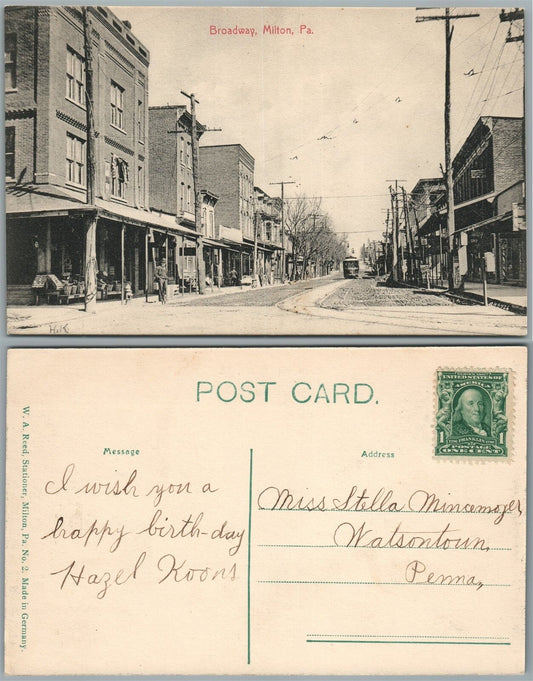 Broadway, Milton, Pa.
H.K
POST CARD.
W. A. Reed, Stationer, Milton, Pa. No. 2. Made in Germany.
Message
Address
SERIES 1902
UNITED STATES OF AMERICA
FRANKLIN
1 POSTAGE 1
ONE CENT
I wish you a
happy birth-day
Hazel Koons
Miss Stella Mincemoyer
Watsontown,
Penna,